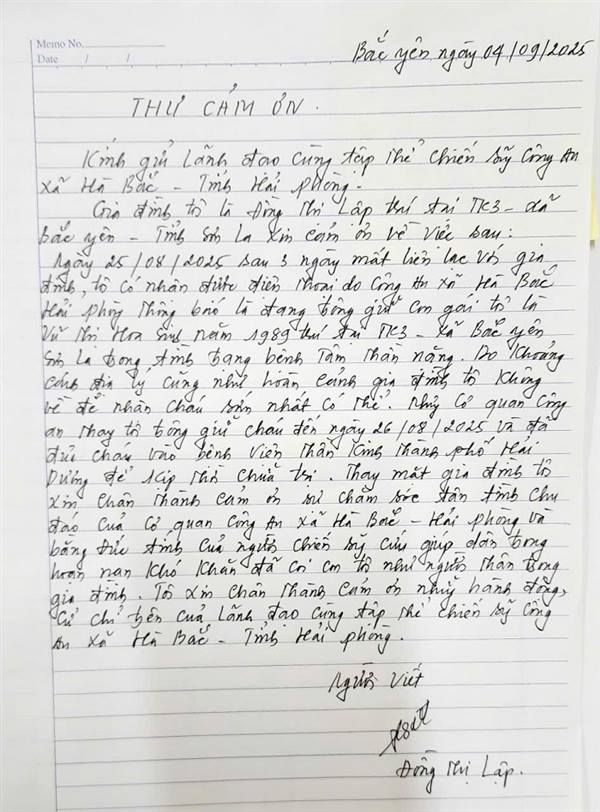 Memo No.
Date / /
Bắc yên ngày 04/09/2025
THƯ CẢM ƠN.
Kính gửi Lãnh đạo cùng tập thể chiến sỹ Công An
xã Hà Bắc - Tỉnh Hải phòng.
Gia đình tôi là Đồng Thị Lập trú tại TK3 - xã
Bắc yên - Tỉnh Sơn La xin cảm ơn về việc sau:
Ngày 25/08/2025 sau 3 ngày mất liên lạc với gia
đình, tôi có nhận được điện thoại do Công An xã Hà Bắc
Hải phòng thông báo là đang trông giữ con gái tôi là
Vũ Thị Hoa sinh năm 1989 trú tại TK3 - xã Bắc yên
Sơn La trong tình trạng bệnh Tâm thần nặng. Do khoảng
cách địa lý cũng như hoàn cảnh gia đình tôi không
về để nhận cháu sớm nhất có thể. Nhưng cơ quan công
an thay tôi trông giữ cháu đến ngày 26/08/2025 và đã
đưa cháu vào bệnh viện Thần kinh thành phố Hải
Dương để kịp thời chữa trị. Thay mặt gia đình tôi
xin chân thành cảm ơn sự chăm sóc tận tình chu
đáo của cơ quan Công An xã Hà Bắc - Hải phòng và
bằng đức tính của người chiến sỹ cứu giúp dân trong
hoạn nạn khó khăn đã coi con tôi như người thân trong
gia đình. Tôi xin chân thành cảm ơn những hành động,
cử chỉ trên của Lãnh đạo cùng tập thể chiến sỹ Công
An xã Hà Bắc - Tỉnh Hải phòng.
Người viết
Đồng Thị Lập.